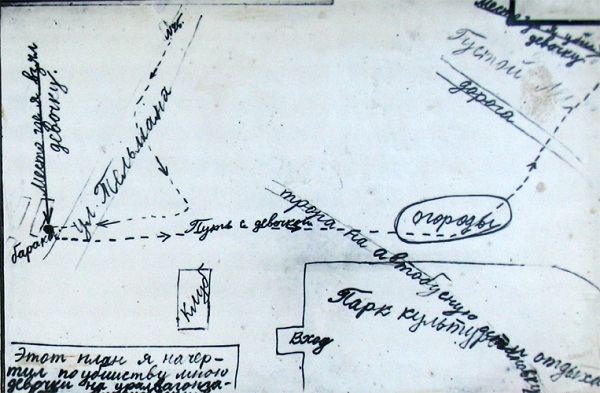 девочку
Пустой
дорога
место где я взял
девочку.
ул. Тельмана
барак
Путь с девочкой
огороды
тропа на автобусную
Клуб
Парк культуры отдыха
Вход
Этот план я начер-
тил по убийству мною
девочки на уралвагонза-